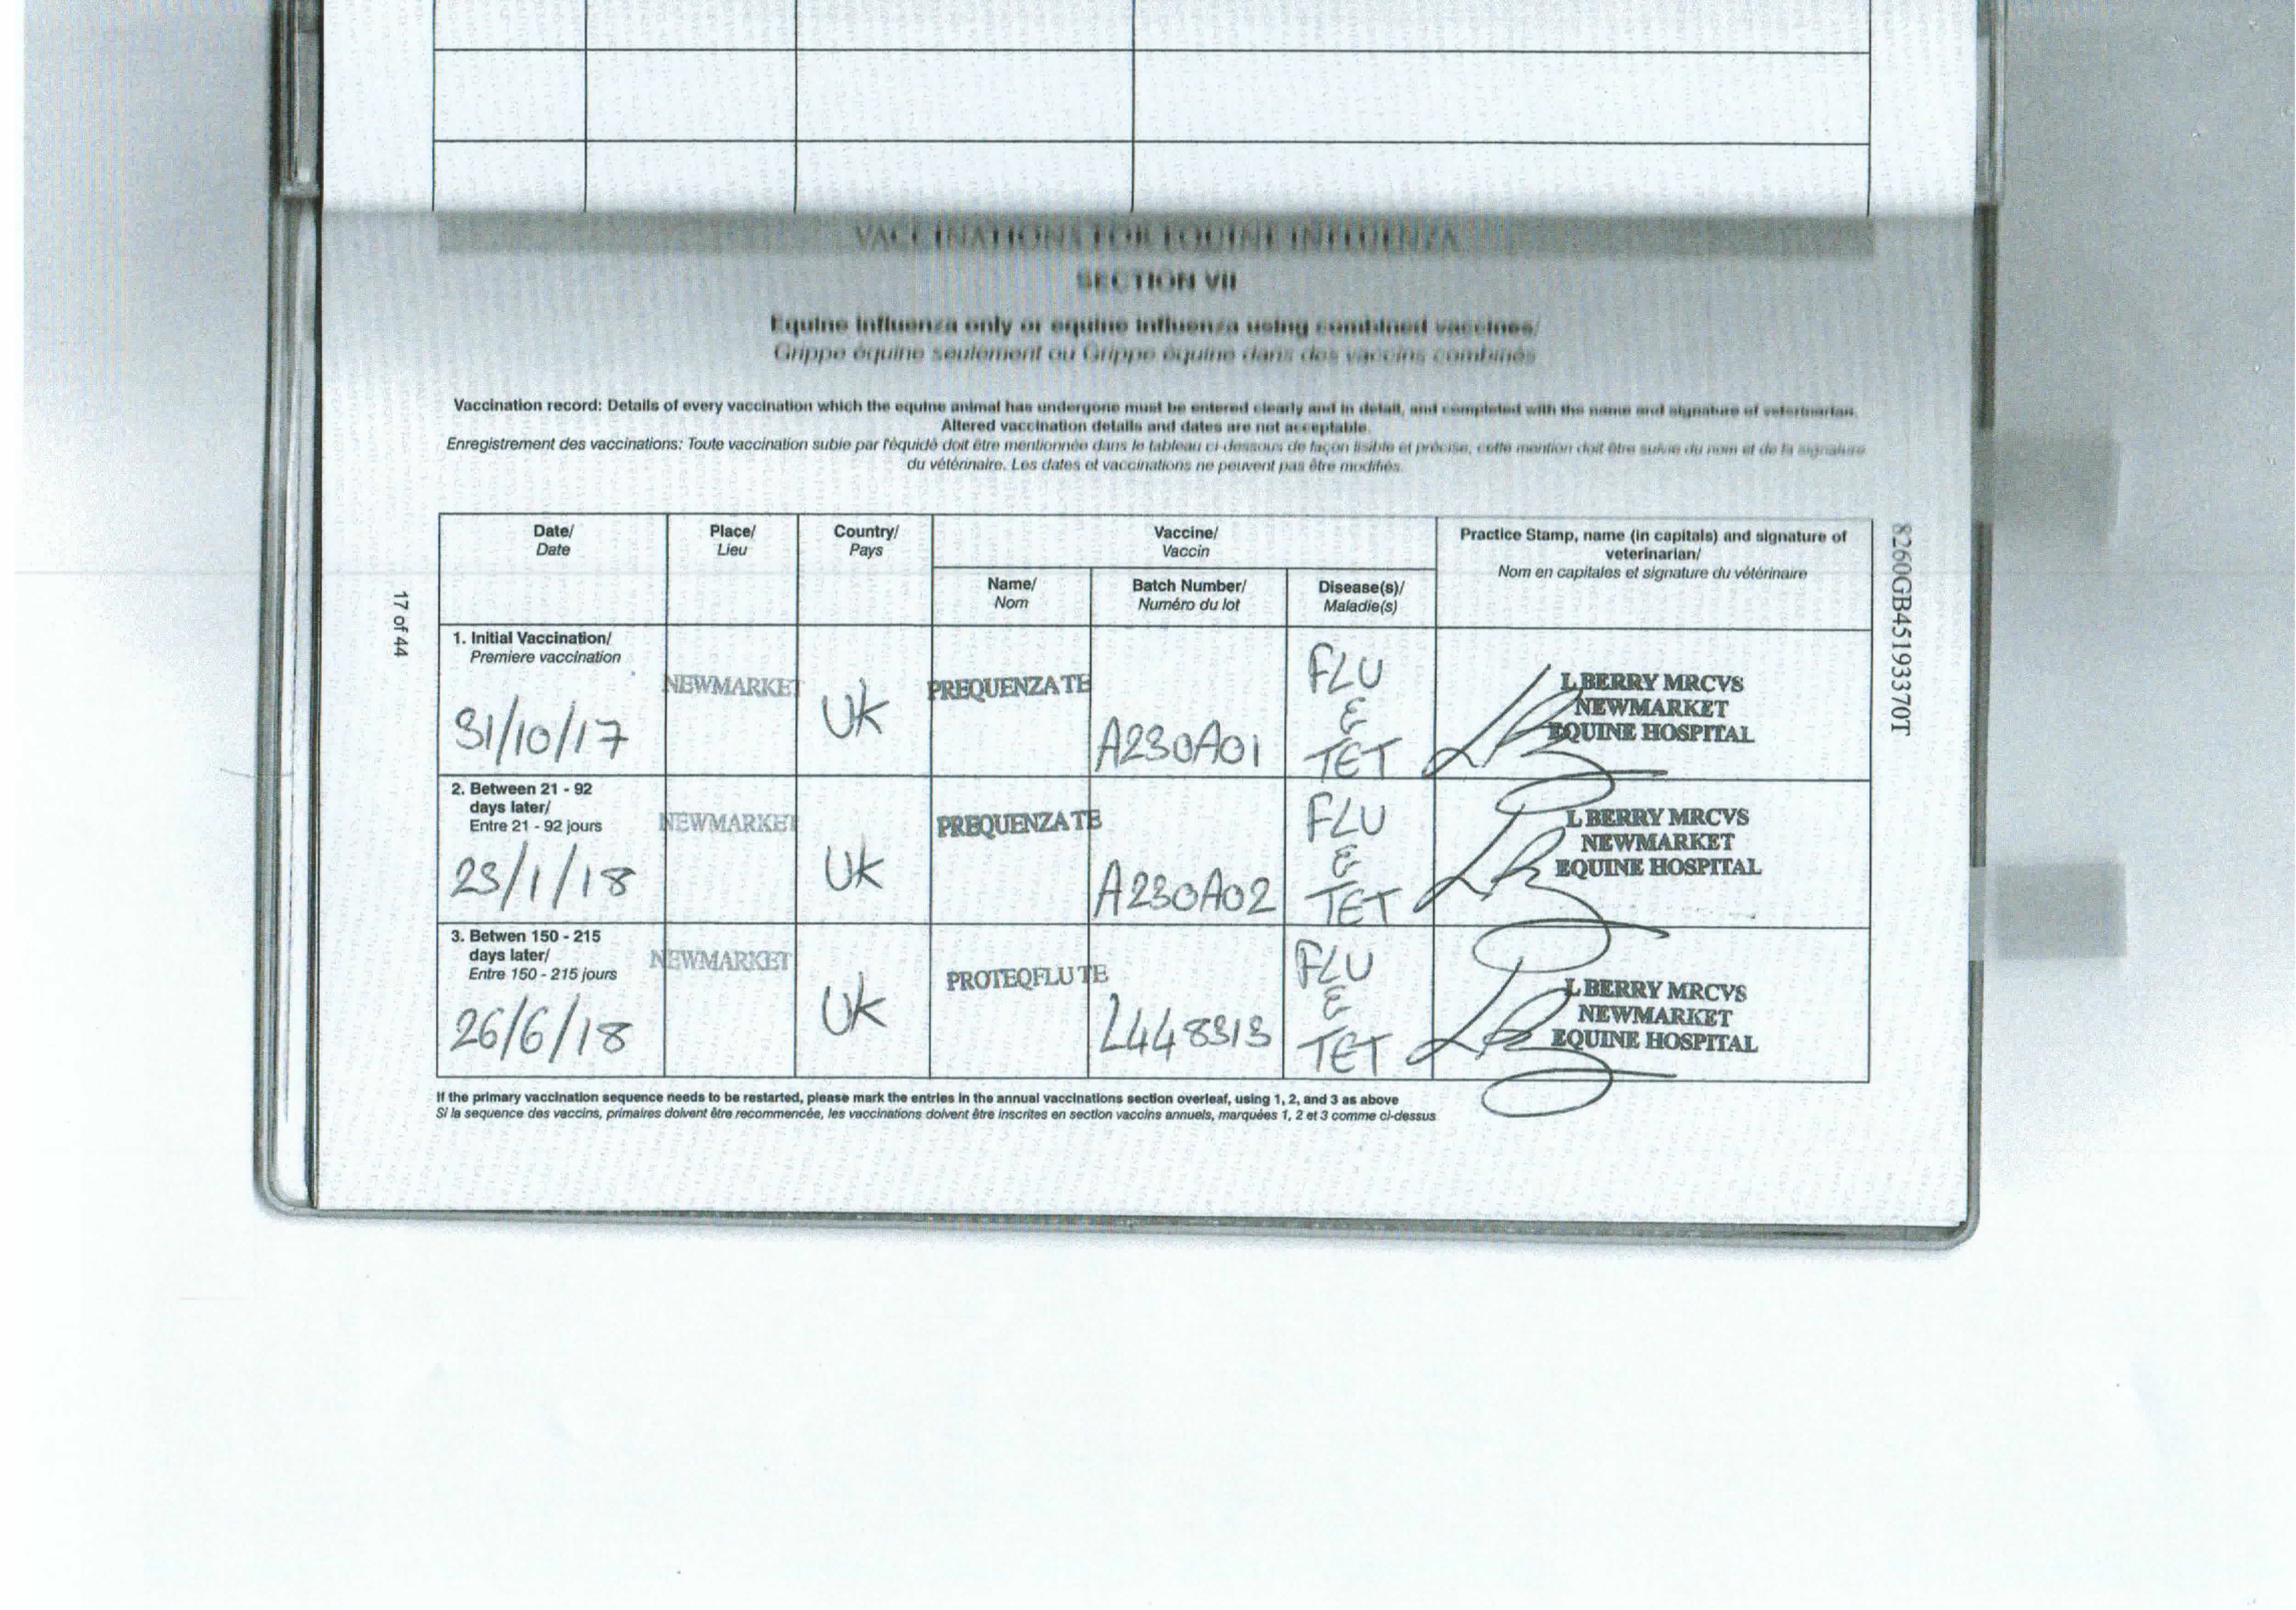 VACCINATIONS FOR EQUINE INFLUENZA
SECTION VII
Equine influenza only or equine influenza using combined vaccines/
Grippe équine seulement ou Grippe équine dans des vaccins combinés
Vaccination record: Details of every vaccination which the equine animal has undergone must be entered clearly and in detail, and completed with the name and signature of veterinarian.
Altered vaccination details and dates are not acceptable.
Enregistrement des vaccinations: Toute vaccination subie par l'équidé doit être mentionnée dans le tableau ci-dessous de façon lisible et précise, cette mention doit être suivie du nom et de la signature
du vétérinaire. Les dates et vaccinations ne peuvent pas être modifiés.
Date/
Date
Place/
Lieu
Country/
Pays
Vaccine/
Vaccin
Name/
Nom
Batch Number/
Numéro du lot
Disease(s)/
Maladie(s)
Practice Stamp, name (in capitals) and signature of
veterinarian/
Nom en capitales et signature du vétérinaire
1. Initial Vaccination/
Premiere vaccination
31/10/17
NEWMARKET
UK
PREQUENZA TE
A230A01
FLU
&
TET
L BERRY MRCVS
NEWMARKET
EQUINE HOSPITAL
2. Between 21 - 92
days later/
Entre 21 - 92 jours
23/1/18
NEWMARKET
UK
PREQUENZA TE
A230A02
FLU
&
TET
L BERRY MRCVS
NEWMARKET
EQUINE HOSPITAL
3. Betwen 150 - 215
days later/
Entre 150 - 215 jours
26/6/18
NEWMARKET
UK
PROTEQFLU TE
L448313
FLU
&
TET
L BERRY MRCVS
NEWMARKET
EQUINE HOSPITAL
If the primary vaccination sequence needs to be restarted, please mark the entries in the annual vaccinations section overleaf, using 1, 2, and 3 as above
Si la sequence des vaccins, primaires doivent être recommencée, les vaccinations doivent être inscrites en section vaccins annuels, marquées 1, 2 et 3 comme ci-dessus
17 of 44
8260GB45193370T